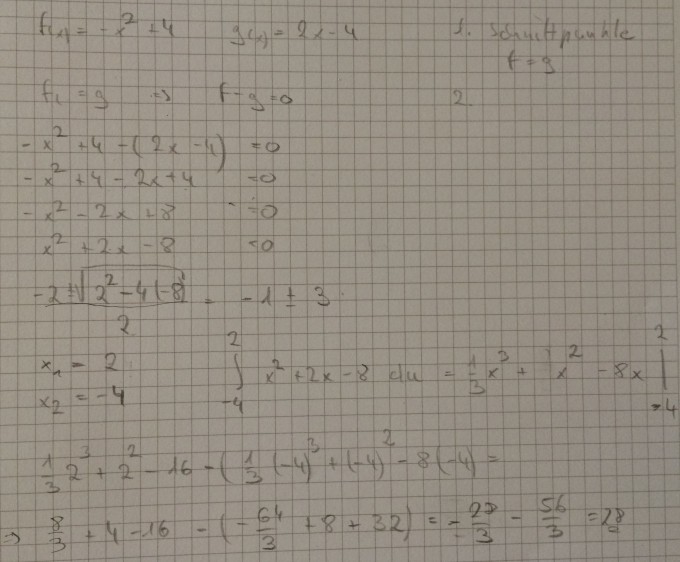 f(x) = -x² + 4    g(x) = 2x - 4    1. Schnittpunkte
f = g
f = g  =>  f - g = 0    2.
-x² + 4 - (2x - 4) = 0
-x² + 4 - 2x + 4 = 0
-x² - 2x + 8 = 0
x² + 2x - 8 = 0
(-2 ± √(2² - 4(-8))) / 2 = -1 ± 3
x₁ = 2
x₂ = -4
∫₋₄² x² + 2x - 8 du = 1/3 x³ + x² - 8x |₋₄²
1/3 2³ + 2² - 16 - (1/3 (-4)³ + (-4)² - 8(-4) =
=> 8/3 + 4 - 16 - (-64/3 + 8 + 32) = -28/3 - 56/3 = 28